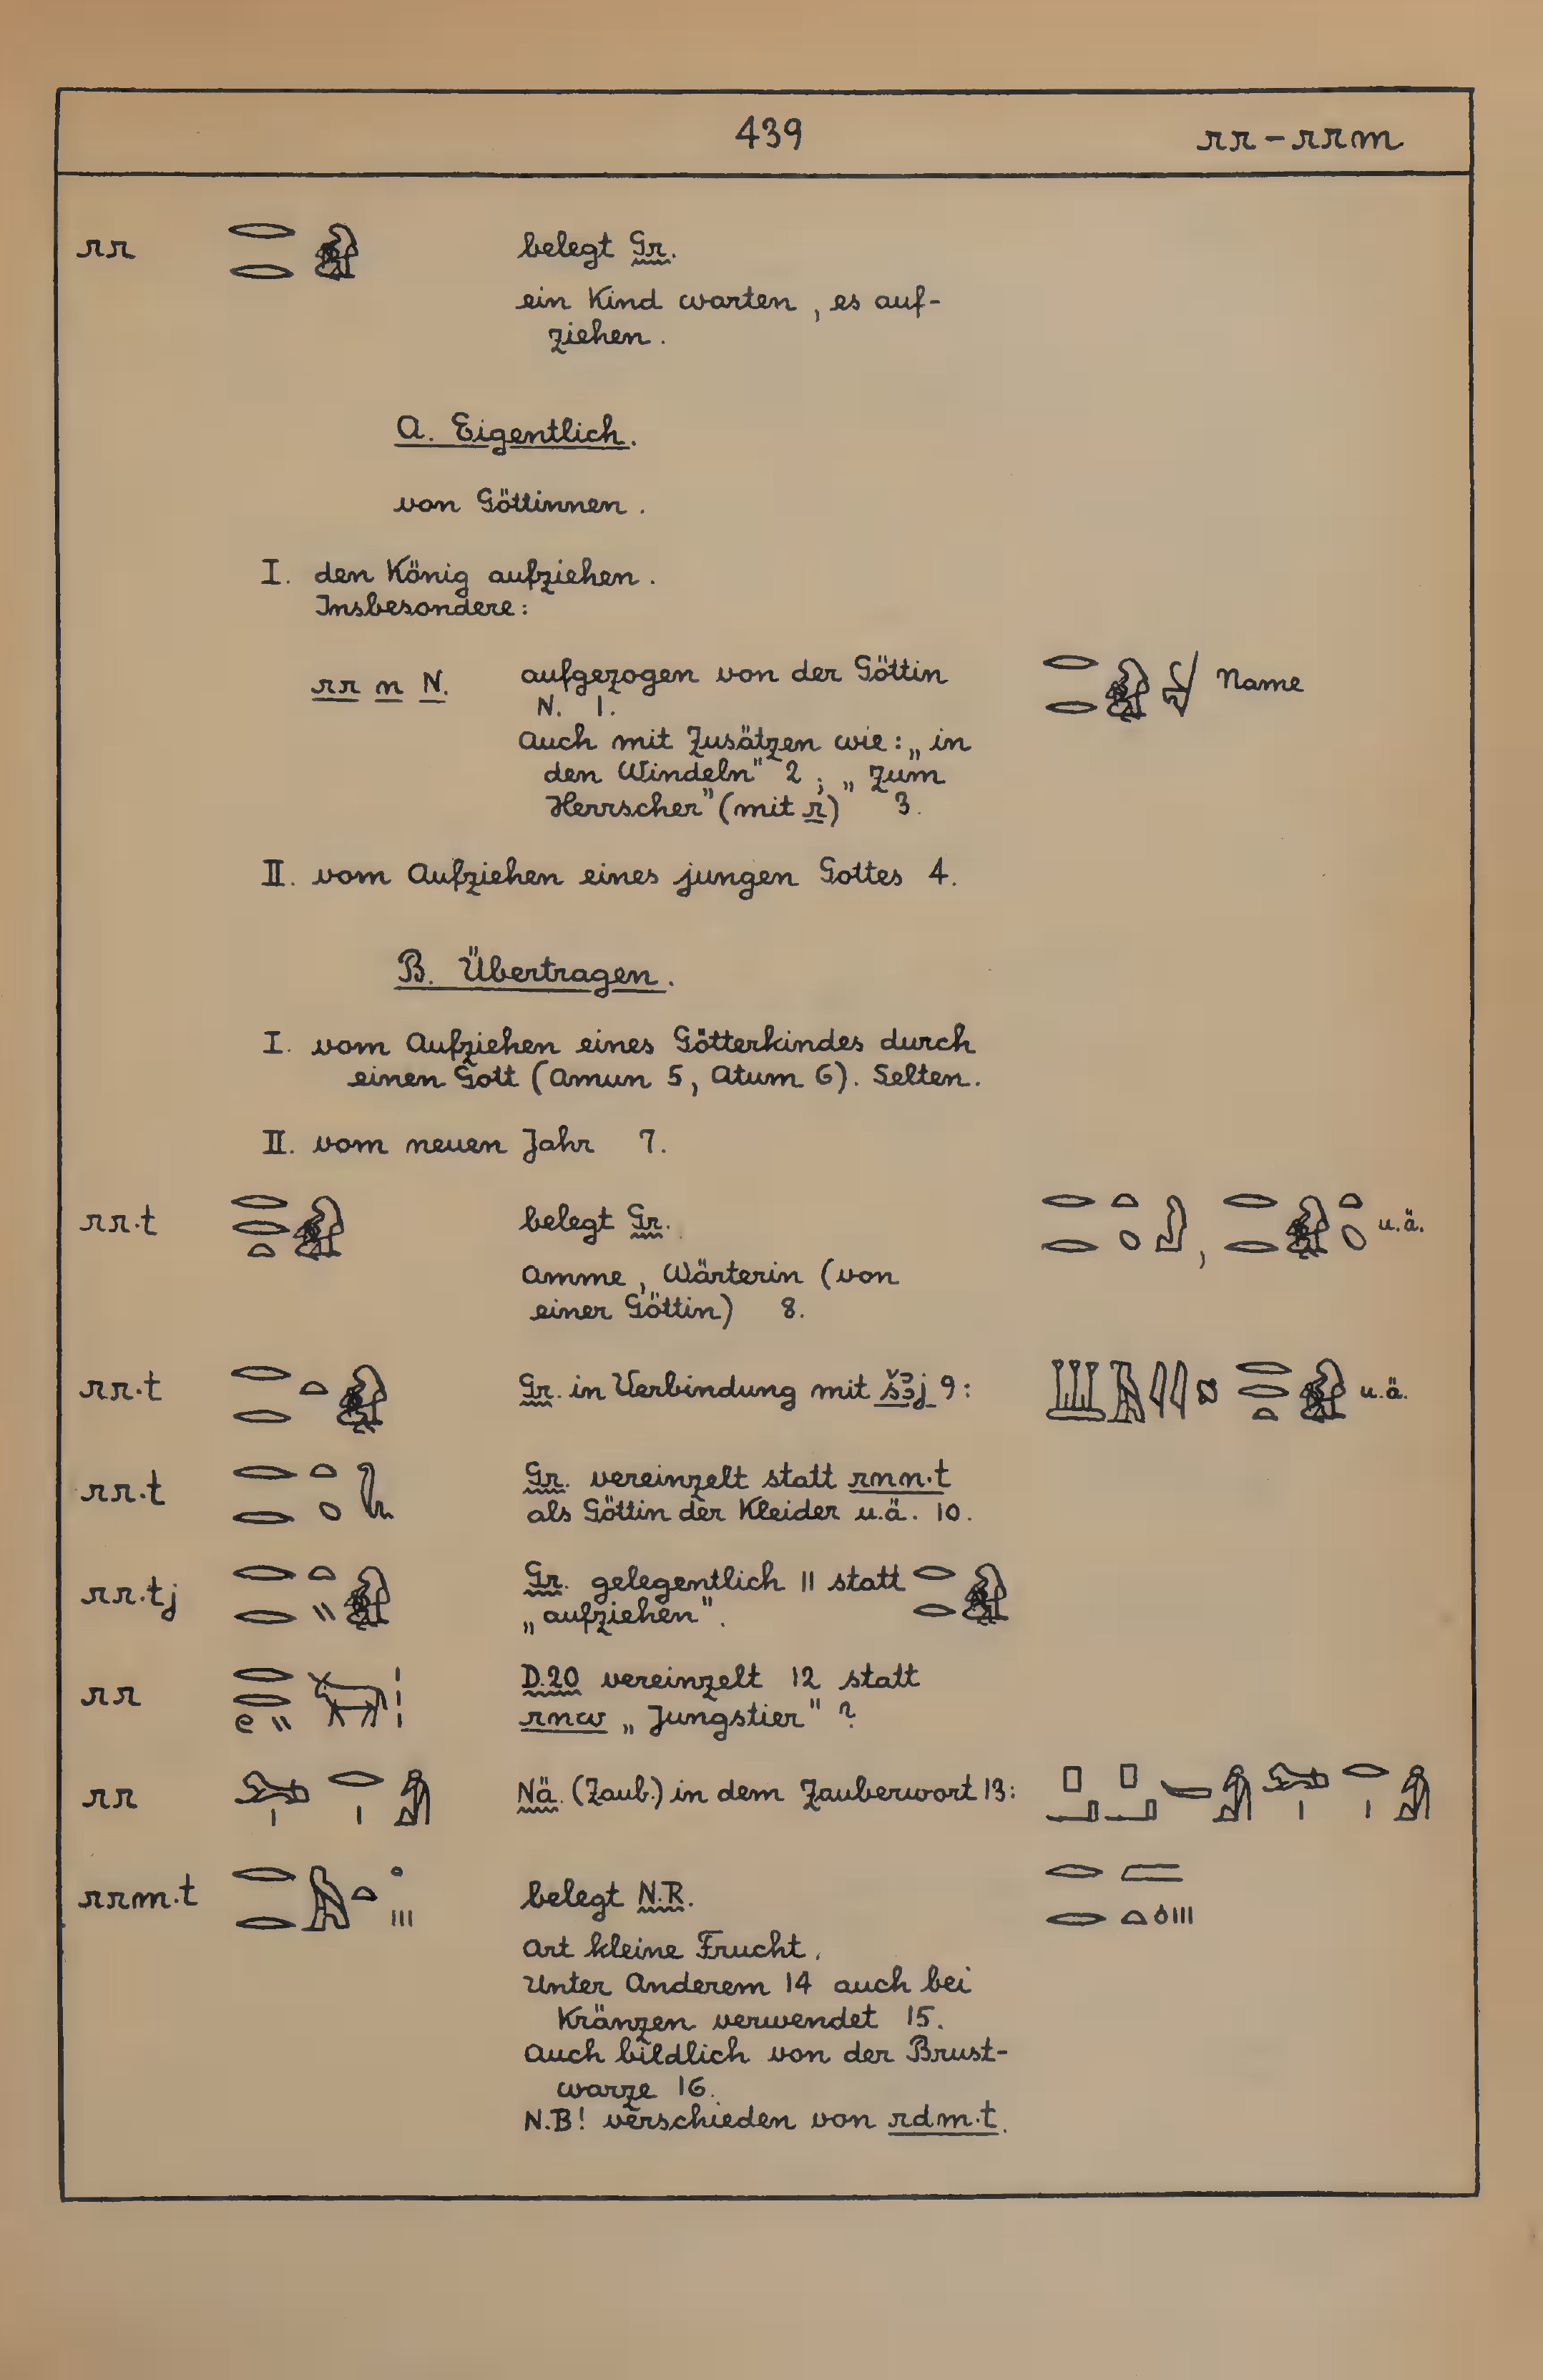 439 rr - rrm
rr belegt Gr.
ein Kind warten, es auf-
ziehen.
A. Eigentlich.
von Göttinnen.
I. den König aufziehen.
Insbesondere:
rr n N. aufgezogen von der Göttin Name
N. 1.
Auch mit Zusätzen wie: „in
den Windeln" 2; „zum
Herrscher" (mit r) 3.
II. vom Aufziehen eines jungen Gottes 4.
B. Übertragen.
I. vom Aufziehen eines Götterkindes durch
einen Gott (Amun 5, Atum 6). Selten.
II. vom neuen Jahr 7.
rr.t belegt Gr. u.ä.
Amme, Wärterin (von
einer Göttin) 8.
rr.t Gr. in Verbindung mit šꜣj 9: u.ä.
rr.t Gr. vereinzelt statt rnn.t
als Göttin der Kleider u.ä. 10.
rr.tj Gr. gelegentlich 11 statt
„aufziehen".
rr D.20 vereinzelt 12 statt
rnw „Jungstier" ?
rr Nä. (Zaub.) in dem Zauberwort 13:
rrm.t belegt N.R.
Art kleine Frucht.
Unter Anderem 14 auch bei
Kränzen verwendet 15.
Auch bildlich von der Brust-
warze 16.
N.B! verschieden von rdm.t.